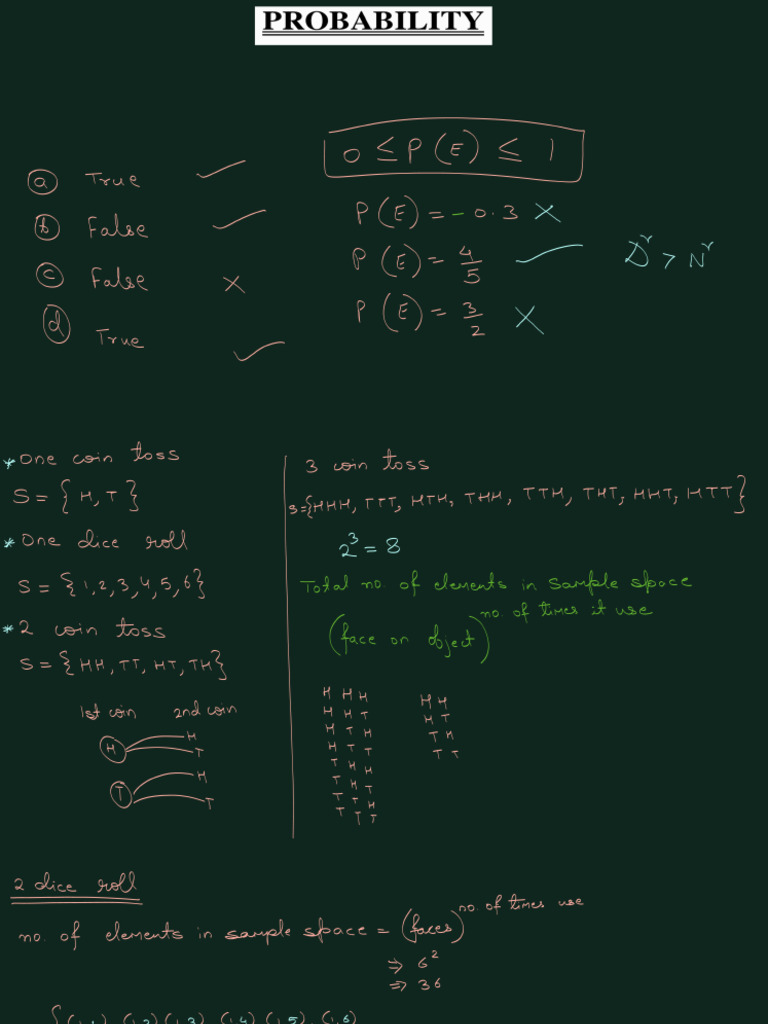 PROBABILITY
0 ≤ P(E) ≤ 1
ⓐ True ✓
ⓑ False ✓
ⓒ False ✗
ⓓ True ✓
P(E) = -0.3 ✗
P(E) = 4/5 ✓ Dʳ > Nʳ
P(E) = 3/2 ✗
* One coin toss
S = {H, T}
* One dice roll
S = {1, 2, 3, 4, 5, 6}
* 2 coin toss
S = {HH, TT, HT, TH}
1st coin 2nd coin
H H
T
T H
T
3 coin toss
S = {HHH, TTT, HTH, THH, TTH, THT, HHT, HTT}
2³ = 8
Total no. of elements in sample space
(face on object)^no. of times it use
H H H
H H T
H T H
H T T
T H H
T H T
T T H
T T T
H H
H T
T H
T T
2 dice roll
no. of elements in sample space = (faces)^no. of times use
⇒ 6²
⇒ 36
{(1,1) (1,2) (1,3) (1,4) (1,5), (1,6)